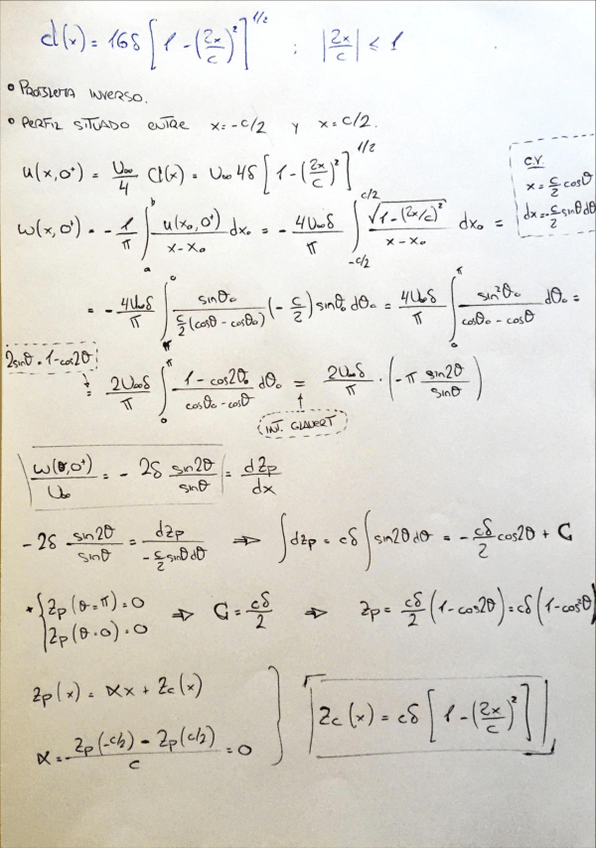 cl(x) = 16δ [1 - (2x/c)²]^1/2 ; |2x/c| ≤ 1
• PROBLEMA INVERSO.
• PERFIL SITUADO ENTRE x=-c/2 y x=c/2.
u(x,0⁺) = U∞/4 Cl(x) = U∞ 4δ [1 - (2x/c)²]^1/2
C.V.
x = c/2 cosθ
dx = -c/2 sinθ dθ
ω(x,0⁺) = -1/π ∫_a^b u(x₀,0⁺)/(x-x₀) dx₀ = -4U∞δ/π ∫_-c/2^c/2 √(1-(2x/c)²)/(x-x₀) dx₀ =
= -4U∞δ/π ∫_π^0 sinθ₀/(c/2 (cosθ - cosθ₀)) (-c/2) sinθ₀ dθ₀ = 4U∞δ/π ∫_0^π sin²θ₀/(cosθ₀ - cosθ) dθ₀ =
2sinθ = 1-cos2θ
= 2U∞δ/π ∫_0^π (1-cos2θ₀)/(cosθ₀-cosθ) dθ₀ = 2U∞δ/π · (-π sin2θ/sinθ)
INT. GLAUERT
ω(θ,0⁺)/U∞ = -2δ sin2θ/sinθ = dZp/dx
-2δ sin2θ/sinθ = dzp/(-c/2 sinθ dθ) ⇒ ∫dzp = cδ ∫sin2θ dθ = -cδ/2 cos2θ + C
* { Zp(θ=π)=0 ⇒ C = cδ/2 ⇒ Zp = cδ/2 (1-cos2θ) = cδ(1-cos²θ)
Zp(θ=0)=0
Zp(x) = αx + Zc(x)
α = - (Zp(-c/2) - Zp(c/2))/c = 0
Zc(x) = cδ [1 - (2x/c)²]